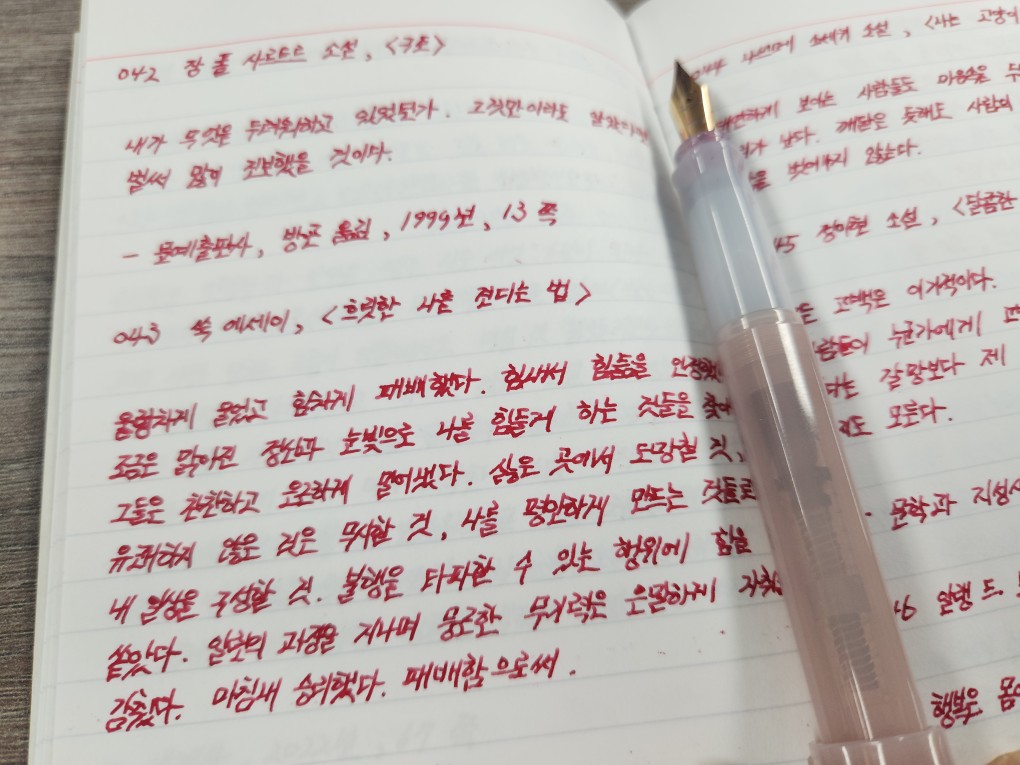 042 장 폴 사르트르 소설, <구토>
내가 무엇을 두려워하고 있었던가. 그것만이라도 알았다면
벌써 많이 진보했을 것이다.
- 문예출판사, 방곤 옮김, 1999년, 13쪽
043 쑥 에세이, <흐릿한 나를 견디는 법>
울렁차게 울었고 힘차게 패배했다. 힘내서 힘듦을 인정했
조금은 맑아진 정신과 눈빛으로 나를 힘들게 하는 것들을 찾아
그들은 찬찬하고 온전하게 밀어냈다. 싫은 곳에서 도망칠 것,
유쾌하지 않은 것은 무시할 것, 나를 평안하게 만드는 것들로
내 일상을 구성할 것. 불행을 타파할 수 있는 행위에 힘을
쏟았다. 일련의 과정을 지나며 뭉근한 무기력은 은밀하게 자취
감췄다. 마침내 승리했다. 패배함으로써.
044 나쓰메 소세키 소설, <나는 고양이
하게 보이는 사람들도 마음속을 두
가 난다. 깨달은 듯해도 사람의
을 벗어나지 않는다.
45 정이현 소설, <달콤한
은 고백은 이기적이다.
람들이 누군가에게 고
다는 갈망보다 제
지도 모른다.
- 문학과 지성사
46 알랭 드
행복은 몸